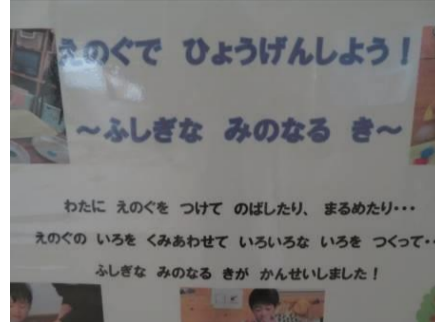 えのぐで ひょうげんしよう！
～ふしぎな みのなる き～
わたに えのぐを つけて のばしたり、 まるめたり・・・
えのぐの いろを くみあわせて いろいろな いろを つくって・・
ふしぎな みのなる きが かんせいしました！